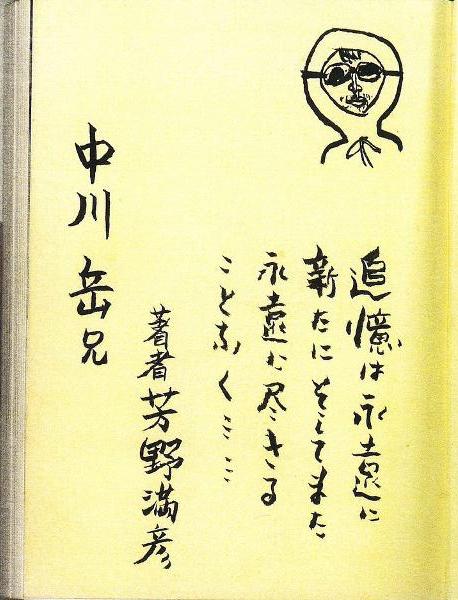 追憶は永遠に
新たにそしてまた
永遠に尽きる
ことなく……
著者芳野満彦
中川岳兄